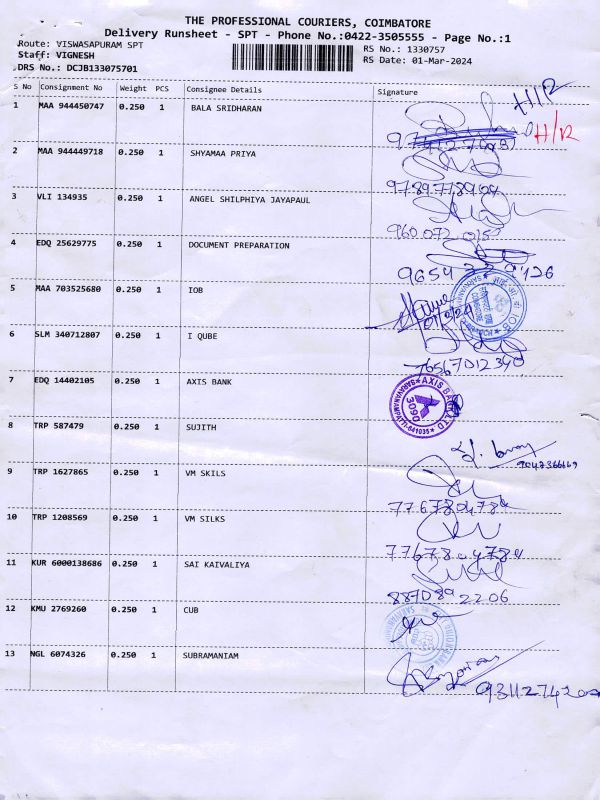 THE PROFESSIONAL COURIERS, COIMBATORE
Delivery Runsheet - SPT - Phone No.:0422-3505555 - Page No.:1
Route: VISWASAPURAM SPT
RS No.: 1330757
Staff: VIGNESH
RS Date: 01-Mar-2024
DRS No.: DCJB133075701
S No Consignment No Weight PCS Consignee Details Signature
H/R
1 MAA 944450747 0.250 1 BALA SRIDHARAN
H/R
2 MAA 944449718 0.250 1 SHYAMAA PRIYA
3 VLI 134935 0.250 1 ANGEL SHILPHIYA JAYAPAUL
4 EDQ 25629775 0.250 1 DOCUMENT PREPARATION
5 MAA 703525680 0.250 1 IOB
6 SLM 340712807 0.250 1 I QUBE
76567012340
7 EDQ 14402105 0.250 1 AXIS BANK
AXIS BANK LTD
3090
SARAVANAMPATTI-641035
8 TRP 587479 0.250 1 SUJITH
9 TRP 1627865 0.250 1 VM SKILS
10 TRP 1208569 0.250 1 VM SILKS
11 KUR 6000138686 0.250 1 SAI KAIVALIYA
8870892206
12 KMU 2769260 0.250 1 CUB
13 NGL 6074326 0.250 1 SUBRAMANIAM